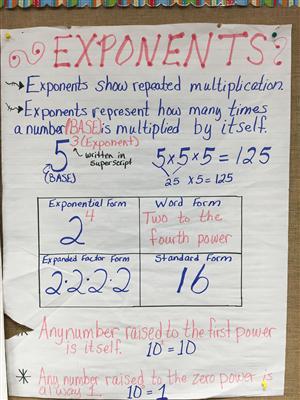 EXPONENTS
Exponents show repeated multiplication.
Exponents represent how many times
a number (BASE) is multiplied by itself.
5³ (Exponent) 5×5×5=125
written in
superscript
(BASE)
25 ×5=125
Exponential Form
2⁴
Word Form
Two to the
fourth power
Expanded Factor Form
2·2·2·2
Standard Form
16
* Any number raised to the first power
is itself. 10¹=10
* Any number raised to the zero power is
always 1. 10⁰=1